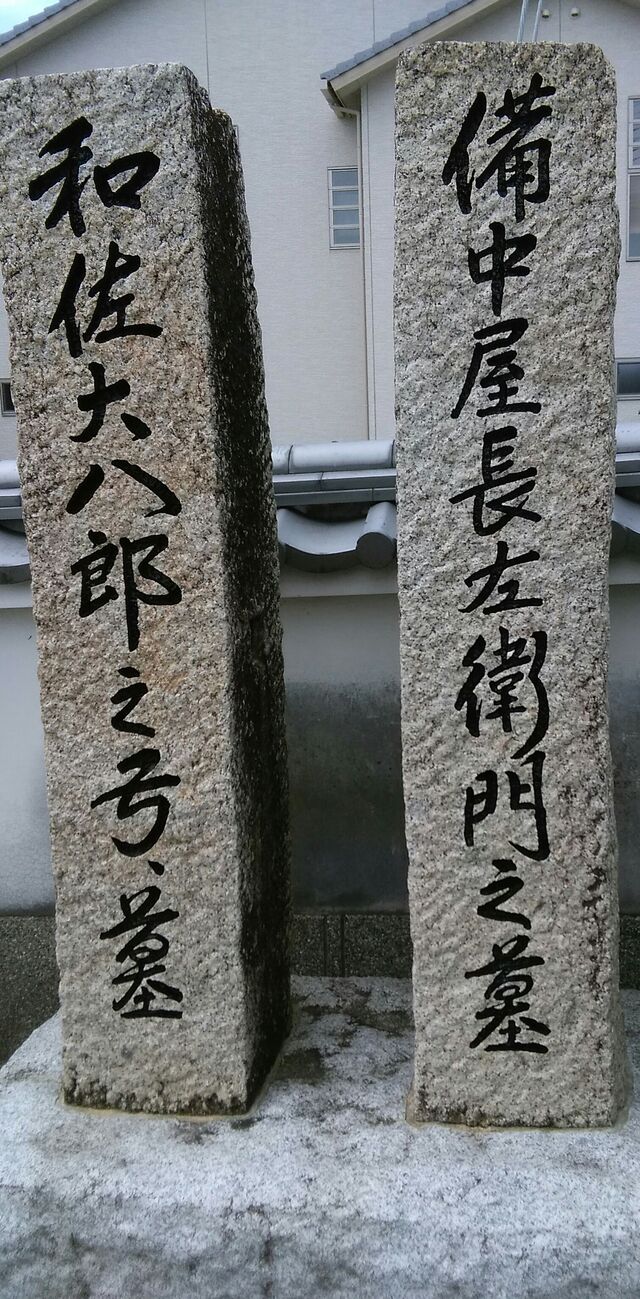 備中屋長左衛門之墓
和佐大八郎之弓、墓